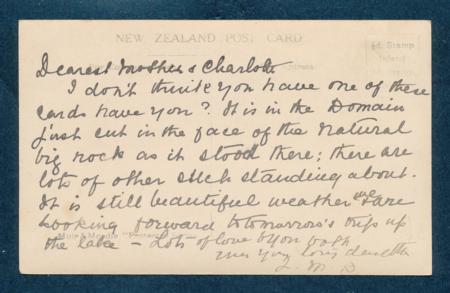 NEW ZEALAND POST CARD
Dearest Mother & Charlotte
I don't think you have one of these
cards have you? It is in the Domain
just cut in the face of the natural
big rock as it stood there; there are
lots of other such standing about.
It is still beautiful weather & we are
looking forward to tomorrow's trip up
the lake - Lots of love to you both
Your very loving daughter